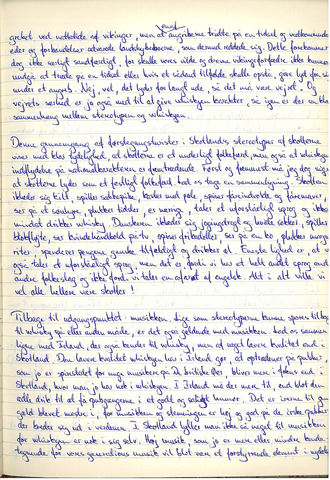 grebet ved nattetide af vikinger, men at angriberne trådte på en tidsel og vedkommendes
eder og forbandelser advarede landsbybeboerne, som dermed reddede sig. Dette forekommer
dog ikke særligt sandfærdigt, for skulle vores vilde og drevne vikingeforfædre ikke kunne
undgå at træde på en tidsel eller hvis et sådant tilfælde skulle opstå, give lyd fra sig
under et angreb. Nej, vel, det lyder for langt ude, så det må være vejret. Og
vejrets særhed er jo også med til at give whiskyen karakter, så igen er der en klar
sammenhæng mellem stereotypen og whiskyen.
Denne gennemgang af forestillingsverdener i Skotland, stereotyper af skotterne
viser med klar tydelighed, at skotterne er et underligt folkefærd, men også at whiskyens
indflydelse på nationalkarakteren er fremtrædende. Først og fremmest må jeg dog sige,
at skotterne lyder som et festligt folkefærd hos os. en sammenligning. Skotten
klæder sig i kilt, spiller sækkepibe, kaster med pæle, spiser fåreindvolde og
ser på et søuhyre, plukker tidsler, er nærig, taler et uforståeligt sprog og ikke
mindst drikker whisky. Danskeren iklæder sig joggingtøj og hvide sokker, spiller
blokfløjte, ser håndboldhold på tv, spiser frikadeller, ser på en ko, plukker
riter, spenderer pengene ganske tilfældigt og drikker øl. Eneste lighed er, at vi
også taler et uforståeligt sprog, men det er, fordi vi har et helt andet sprog end
andre folkeslag og ikke fordi vi taler en afart af engelsk. Alt i alt ville vi
vel alle hellere være skotter!
Tilbage til udgangspunktet: musikken. Lige som stereotyperne kunne spores tilbage
til whisky på eller anden måde, er det også gældende med musikken. Lad os sammen
ligne med Irland, der også kender til whisky, men af noget lavere kvalitet end i
Skotland. Den lavere kvalitet whisky har i Irland gør, at optrædener på pubber,
som jo er spillested for unge musikere på De britiske Øer, bliver mere i fokus end i
Skotland, hvor man jo har nok i whiskyen. I Irland må der mere til, end blot den
ædle drik til at få pubgængerne i et godt og saligt humør. Det er Irerne til gen
gæld blevet mestre i, for musikken og stemningen er høj og god på de irske pubber
der breder sig ud i verdenen. I Skotland lytter man ikke så meget til musikken
for whiskyen er nok i sig selv. Høj musik, som jo er mere eller mindre kende
tegnende for vores generations musik vil blot være et forstyrrende element i nydelsen